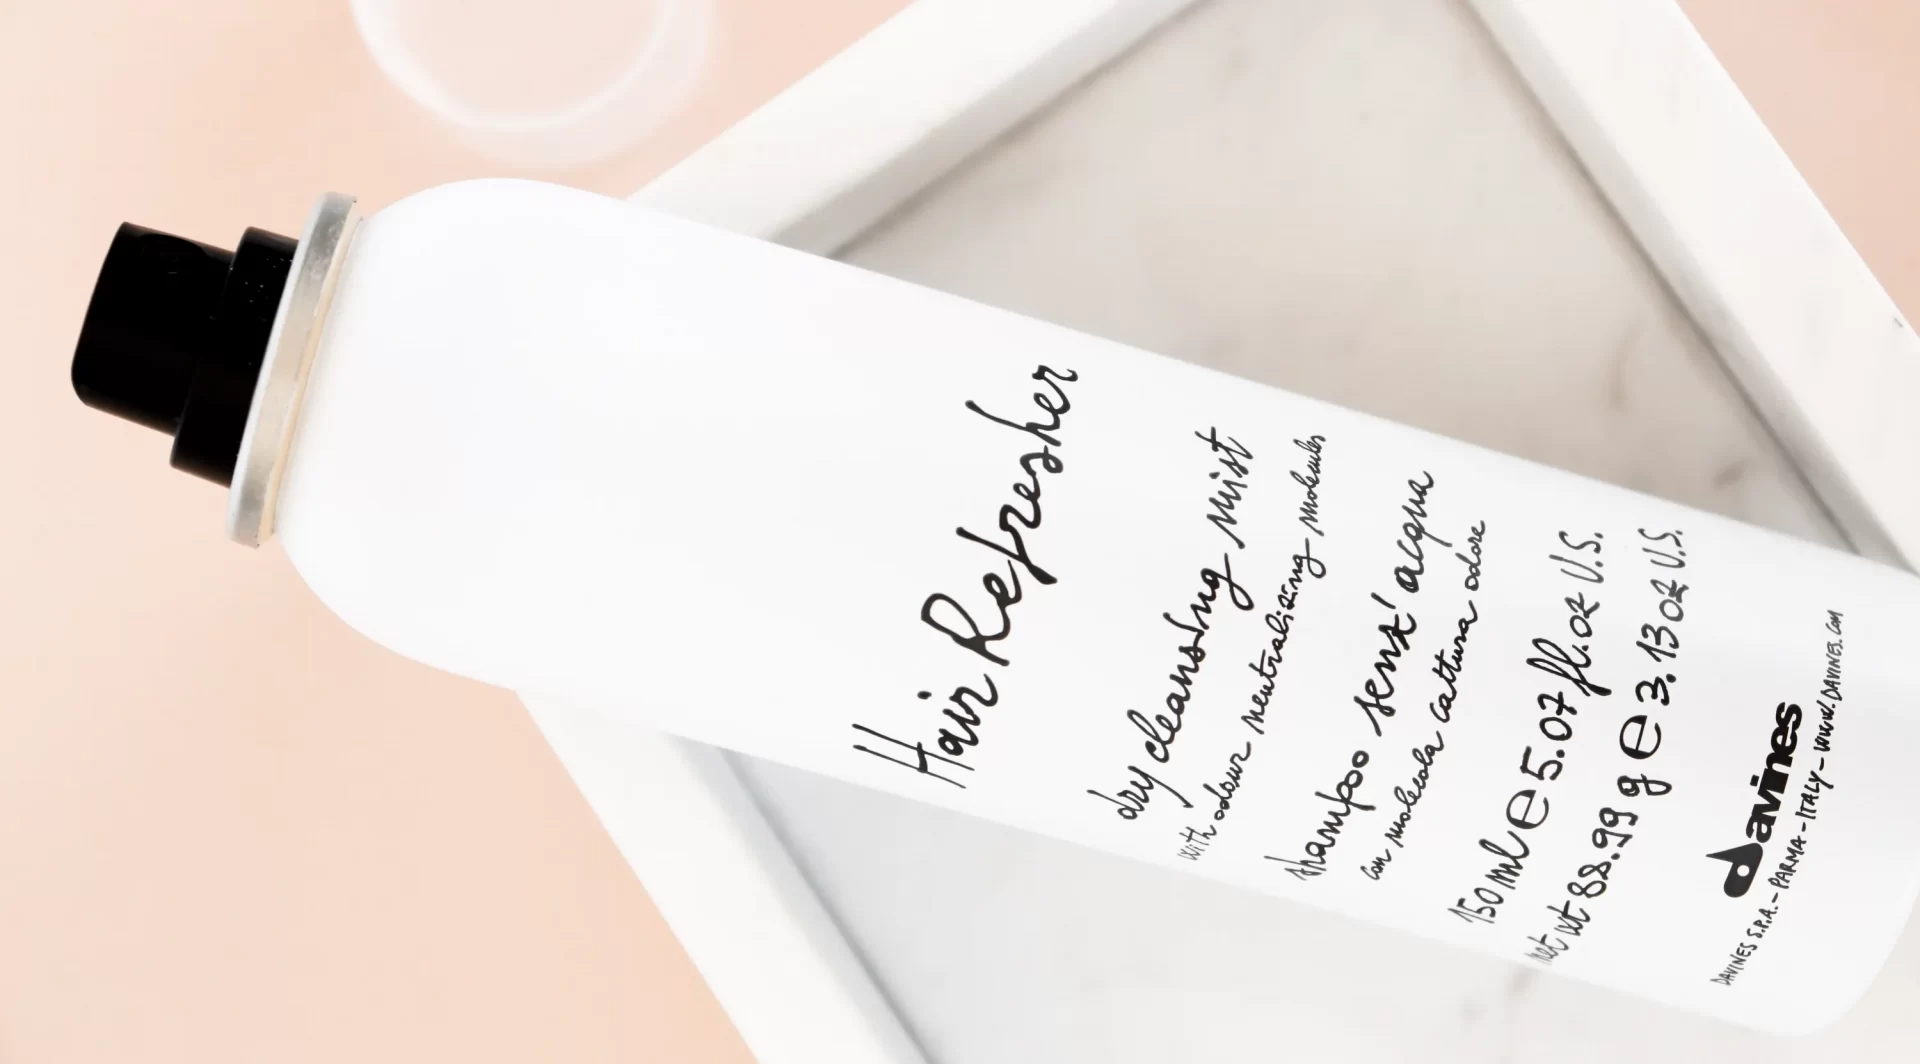 Hair Refresher
dry cleansing mist
with odour neutralizing molecules
shampoo senz' acqua
con molecola cattura odore
150 ml e 5.07 fl.oz U.S.
net wt 88.99 g e 3.13 oz U.S.
davines
DAVINES S.P.A. - PARMA - ITALY - WWW.DAVINES.COM